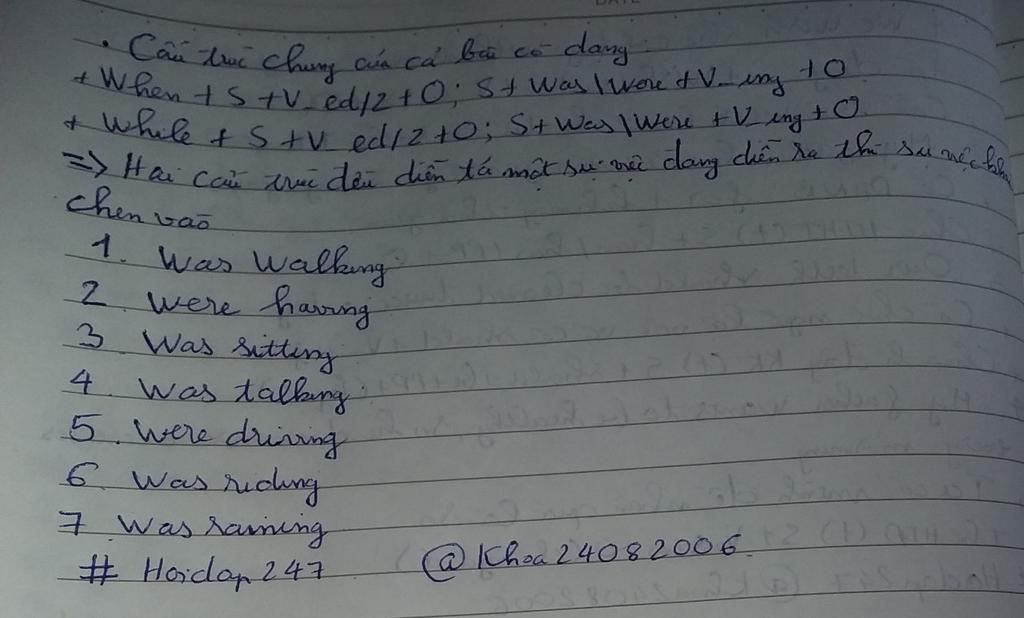 • Cấu trúc chung của cả bài có dạng
+ When + S + V_ed/2 + O; S + Was\Were + V_ing + O
+ While + S + V_ed/2 + O; S + Was\Were + V_ing + O
=> Hai cấu trúc đều diễn tả một sự việc đang diễn ra thì sự việc khác
chen vào
1. Was Walking
2 Were having
3 Was sitting
4 Was talking
5. Were driving
6 Was riding
7 Was raining
# Hoidap247 @Khoa24082006